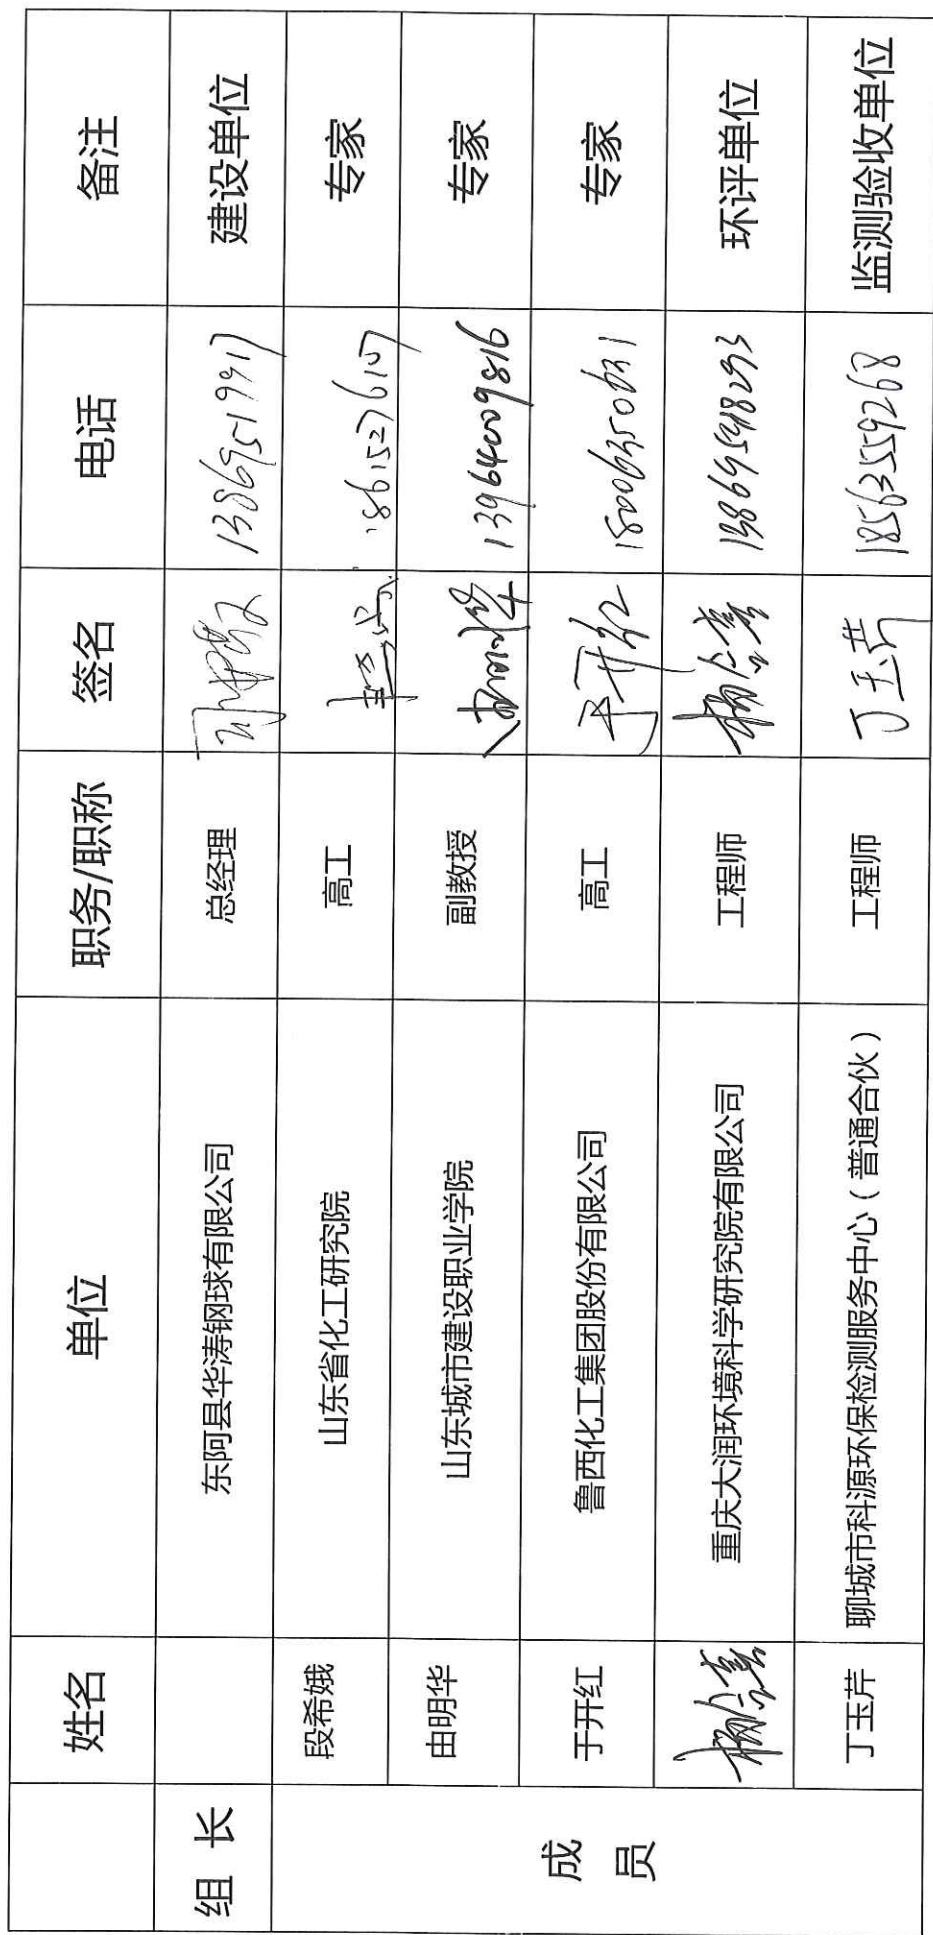 姓名 单位 职务/职称 签名 电话 备注
组长 东阿县华涛钢球有限公司 总经理 13869519917 建设单位
成员
段希娥 山东省化工研究院 高工 专家
由明华 山东城市建设职业学院 副教授 13964009816 专家
于开红 鲁西化工集团股份有限公司 高工 于开红 18006350631 专家
重庆大润环境科学研究院有限公司 工程师 环评单位
丁玉芹 聊城市科源环保检测服务中心（普通合伙） 工程师 丁玉芹 18563559268 监测验收单位